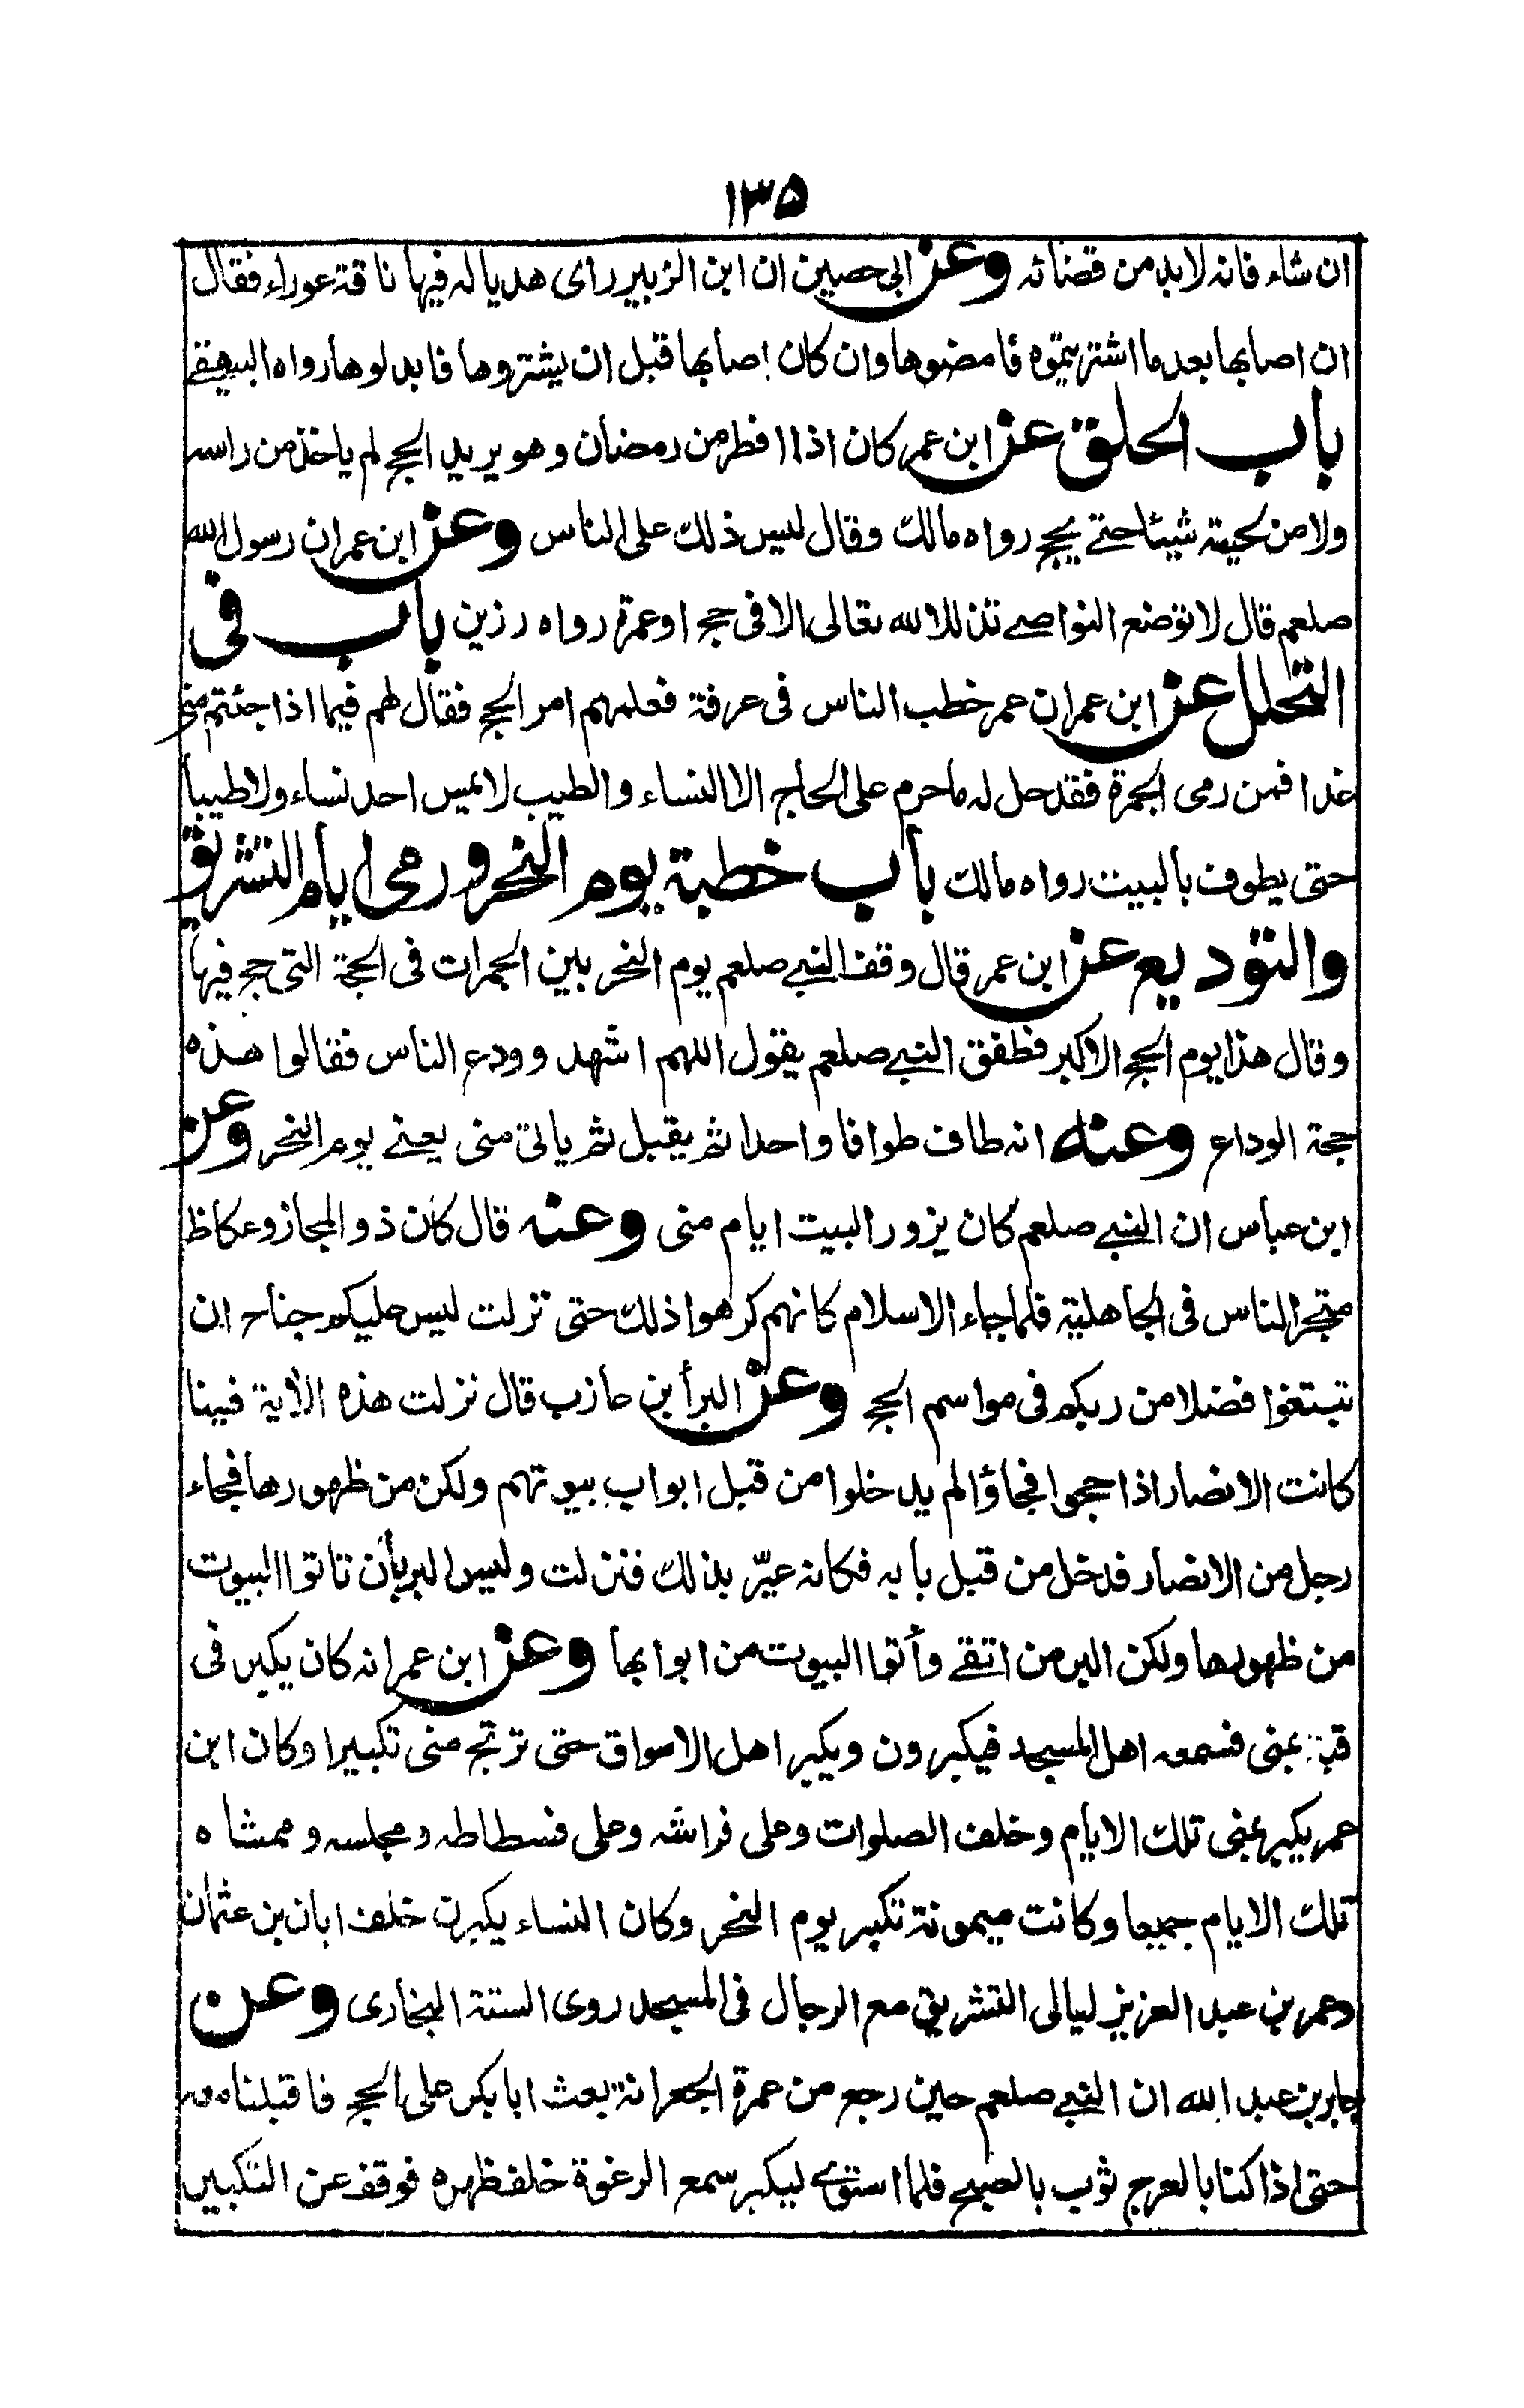 ١٣٥
ان شاء فانه لابد من قضائه وعن ابى حصين ان ابن الزبير راى هديا له فيها ناقة عوراء فقال
ان اصابها بعد ما اشتريتموه فامضوها وان كان اصابها قبل ان يشتروها فابدلوها رواه البيهقے
باب الحلق عن ابن عمر كان اذا افطر من رمضان وهو يريد الحج لم ياخذ من راسه
ولا من لحيته شيئا حتے يحج رواه مالك وقال ليس ذلك على الناس وعن ابن عمر ان رسول الله
صلعم قال لا توضع النواصے تذللا لله تعالى الا فى حج او عمرة رواه رزين باب فى
التحلل عن ابن عمر ان عمر خطب الناس فى عرفة فعلمهم امر الحج فقال لهم فيما اذا جئتم منى
غدا فمن رمى الجمرة فقد حل له ما حرم على الحاج الا النساء والطيب لا يمس احد نساء ولا طيبا
حتى يطوف بالبيت رواه مالك باب خطبة يوم النحر ورمى ايام التشريق
والتوديع عن ابن عمر قال وقف النبے صلعم يوم النحر بين الجمرات فى الحجة التى حج فيها
وقال هذا يوم الحج الاكبر فطفق النبے صلعم يقول اللهم اشهد وودع الناس فقالوا هذه
حجة الوداع وعنه انه طاف طوافا واحدا ثم يقبل ثم ياتى منى يعنے يوم النحر وعن
ابن عباس ان النبے صلعم كان يزور البيت ايام منى وعنه قال كان ذو المجاز وعكاظ
متجر الناس فى الجاهلية فلما جاء الاسلام كانهم كرهوا ذلك حتى نزلت ليس عليكم جناح ان
تبتغوا فضلا من ربكم فى مواسم الحج وعن البرأ بن عازب قال نزلت هذه الأية فينا
كانت الانصار اذا حجوا فجاؤا لم يدخلوا من قبل ابواب بيوتهم ولكن من ظهورها فجاء
رجل من الانصار فدخل من قبل بابه فكانه عيّر بذلك فنزلت وليس البر بأن تاتوا البيوت
من ظهورها ولكن البر من اتقے وأتوا البيوت من ابوابها وعن ابن عمر انه كان يكبر فى
قبة بمنى فسمعه اهل المسجد فيكبرون ويكبر اهل الاسواق حتى ترتج منى تكبيرا وكان ابن
عمر يكبر بمنى تلك الايام وخلف الصلوات وعلى فراشه وعلى فسطاطه ومجلسه وممشاه
تلك الايام جميعا وكانت ميمونة تكبر يوم النحر وكان النساء يكبرن خلف ابان بن عثمان
وعمر بن عبد العزيز ليالى التشريق مع الرجال فى المسجد روى الستة البخارى وعن
جابر بن عبد الله ان النبے صلعم حين رجع من عمرة الجعرانة بعث ابا بكر على الحج فاقبلنا معه
حتى اذا كنا بالعرج ثوب بالصبح فلما استوے ليكبر سمع الرغوة خلف ظهره فوقف عن التكبير